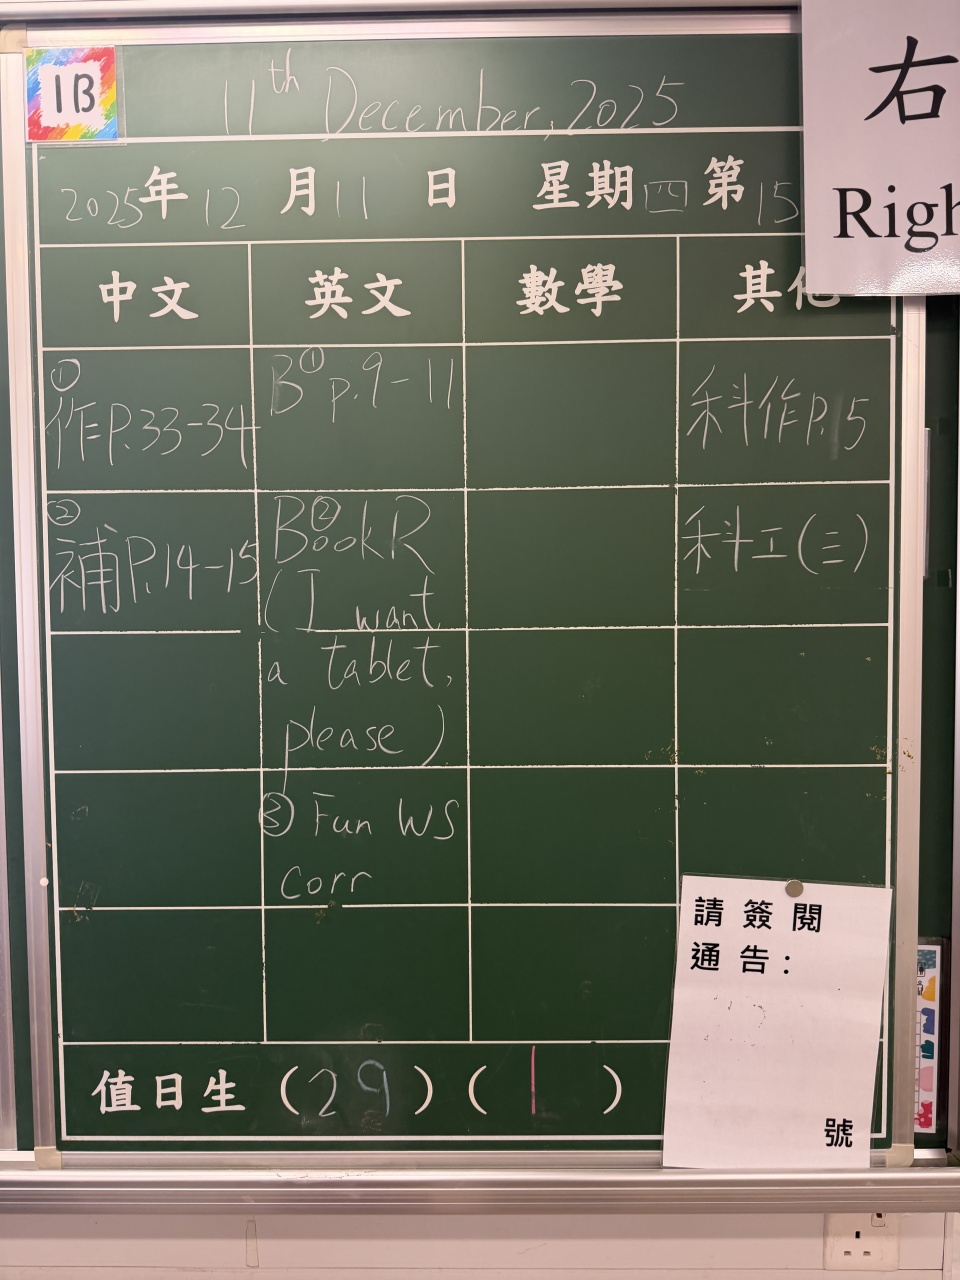 1B
11th December, 2025
右
Righ
2025年12月11日 星期四 第15
中文 英文 數學 其他
①
作P.33-34
②
補P.14-15
B① p.9-11
Book② R
(I want
a tablet,
please)
③ Fun WS
corr
科作P.15
科工(三)
請簽閱
通告:
號
值日生(29)(1)